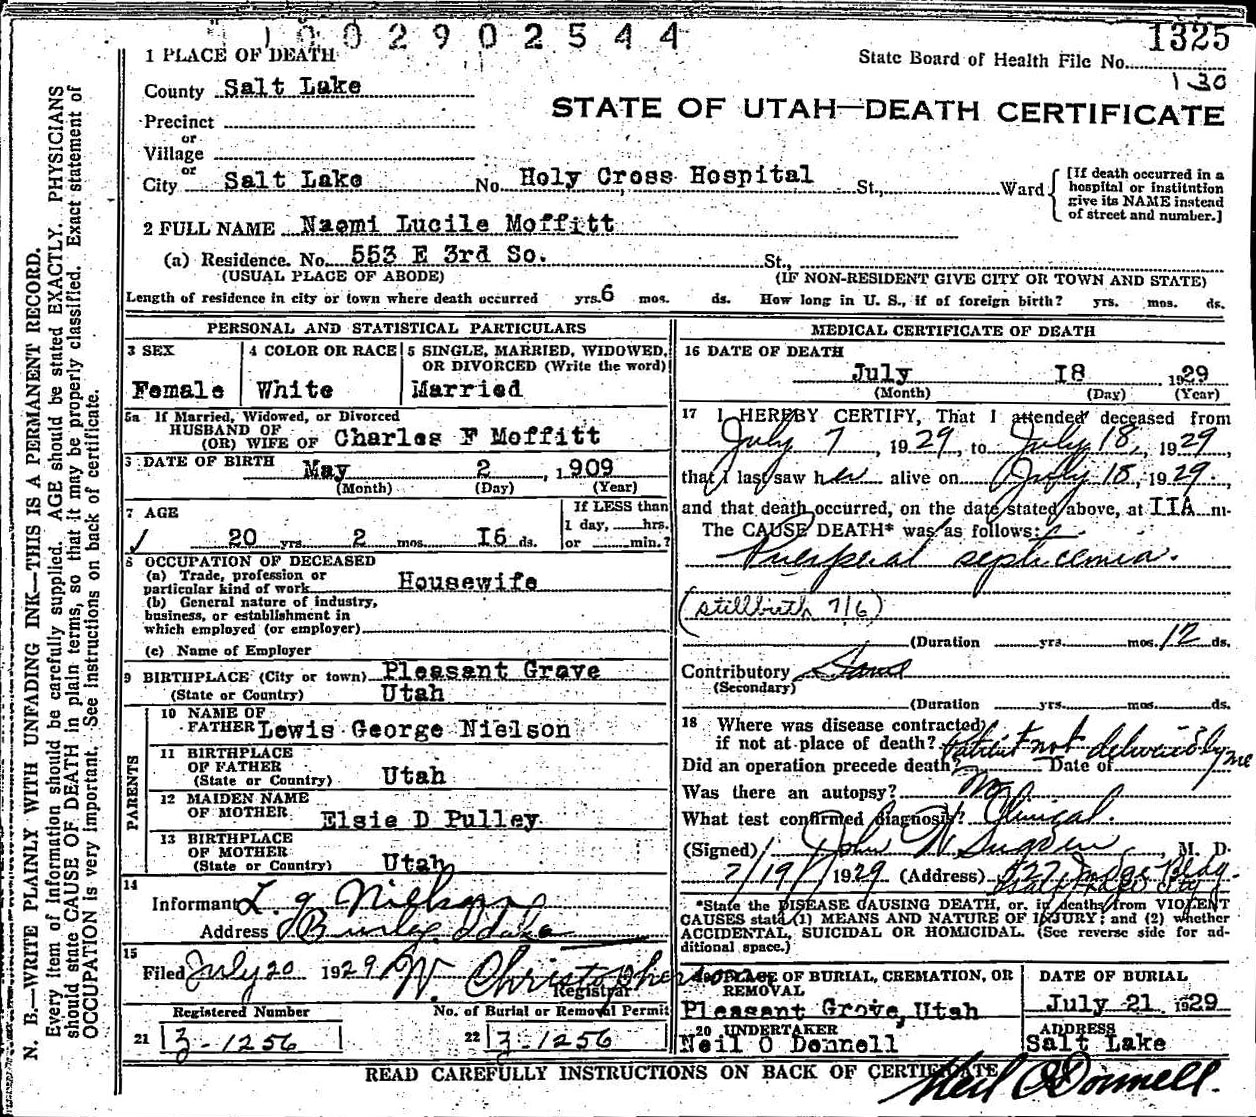 1002902544
1325
1 PLACE OF DEATH
State Board of Health File No.
130
County Salt Lake
STATE OF UTAH—DEATH CERTIFICATE
Precinct
or
Village
or
City Salt Lake No. Holy Cross Hospital St., Ward
[If death occurred in a
hospital or institution
give its NAME instead
of street and number.]
2 FULL NAME Naomi Lucile Moffitt
(a) Residence. No. 553 E 3rd So. St.,
(USUAL PLACE OF ABODE) (IF NON-RESIDENT GIVE CITY OR TOWN AND STATE)
Length of residence in city or town where death occurred yrs. 6 mos. ds. How long in U. S., if of foreign birth? yrs. mos. ds.
PERSONAL AND STATISTICAL PARTICULARS
3 SEX
Female
4 COLOR OR RACE
White
5 SINGLE, MARRIED, WIDOWED,
OR DIVORCED (Write the word)
Married
5a If Married, Widowed, or Divorced
HUSBAND OF
(OR) WIFE OF Charles F Moffitt
DATE OF BIRTH May 2, 1909
(Month) (Day) (Year)
7 AGE
20 yrs. 2 mos. I6 ds.
If LESS than
1 day, hrs.
or min.?
8 OCCUPATION OF DECEASED
(a) Trade, profession or
particular kind of work Housewife
(b) General nature of industry,
business, or establishment in
which employed (or employer)
(c) Name of Employer
9 BIRTHPLACE (City or town) Pleasant Grove
(State or Country) Utah
PARENTS
10 NAME OF
FATHER Lewis George Nielson
11 BIRTHPLACE
OF FATHER
(State or Country) Utah
12 MAIDEN NAME
OF MOTHER Elsie D Pulley
13 BIRTHPLACE
OF MOTHER
(State or Country) Utah
14
Informant L. G. Nielson
Address Burley Idaho
15
Filed July 20 1929 W. Christopherson
Registrar
Registered Number
21 3-1256
No. of Burial or Removal Permit
22 3-1256
MEDICAL CERTIFICATE OF DEATH
16 DATE OF DEATH
July I8 1929
(Month) (Day) (Year)
17 I HEREBY CERTIFY, That I attended deceased from
July 7, 1929, to July 18, 1929,
that I last saw her alive on July 18, 1929,
and that death occurred, on the date stated above, at IIA m.
The CAUSE DEATH* was as follows:
Puerperal septicemia.
(stillbirth 7/6)
(Duration yrs. mos. 12 ds.
Contributory Same
(Secondary)
(Duration yrs. mos. ds.
18 Where was disease contracted
if not at place of death? Patient not delivered by me
Did an operation precede death? Date of
Was there an autopsy? No
What test confirmed diagnosis? Clinical.
(Signed) John W Sugden, M. D.
7/19/1929 (Address) 527 Judge Bldg.
Salt Lake City
*State the DISEASE CAUSING DEATH, or, in deaths from VIOLENT
CAUSES state (1) MEANS AND NATURE OF INJURY; and (2) whether
ACCIDENTAL, SUICIDAL OR HOMICIDAL. (See reverse side for ad-
ditional space.)
PLACE OF BURIAL, CREMATION, OR
REMOVAL
Pleasant Grove, Utah
DATE OF BURIAL
July 21 1929
20 UNDERTAKER
Neil O Donnell
ADDRESS
Salt Lake
READ CAREFULLY INSTRUCTIONS ON BACK OF CERTIFICATE
Neil O'Donnell.
N. B.—WRITE PLAINLY WITH UNFADING INK—THIS IS A PERMANENT RECORD.
Every item of information should be carefully supplied. AGE should be stated EXACTLY. PHYSICIANS
should state CAUSE OF DEATH in plain terms, so that it may be properly classified. Exact statement of
OCCUPATION is very important. See instructions on back of certificate.